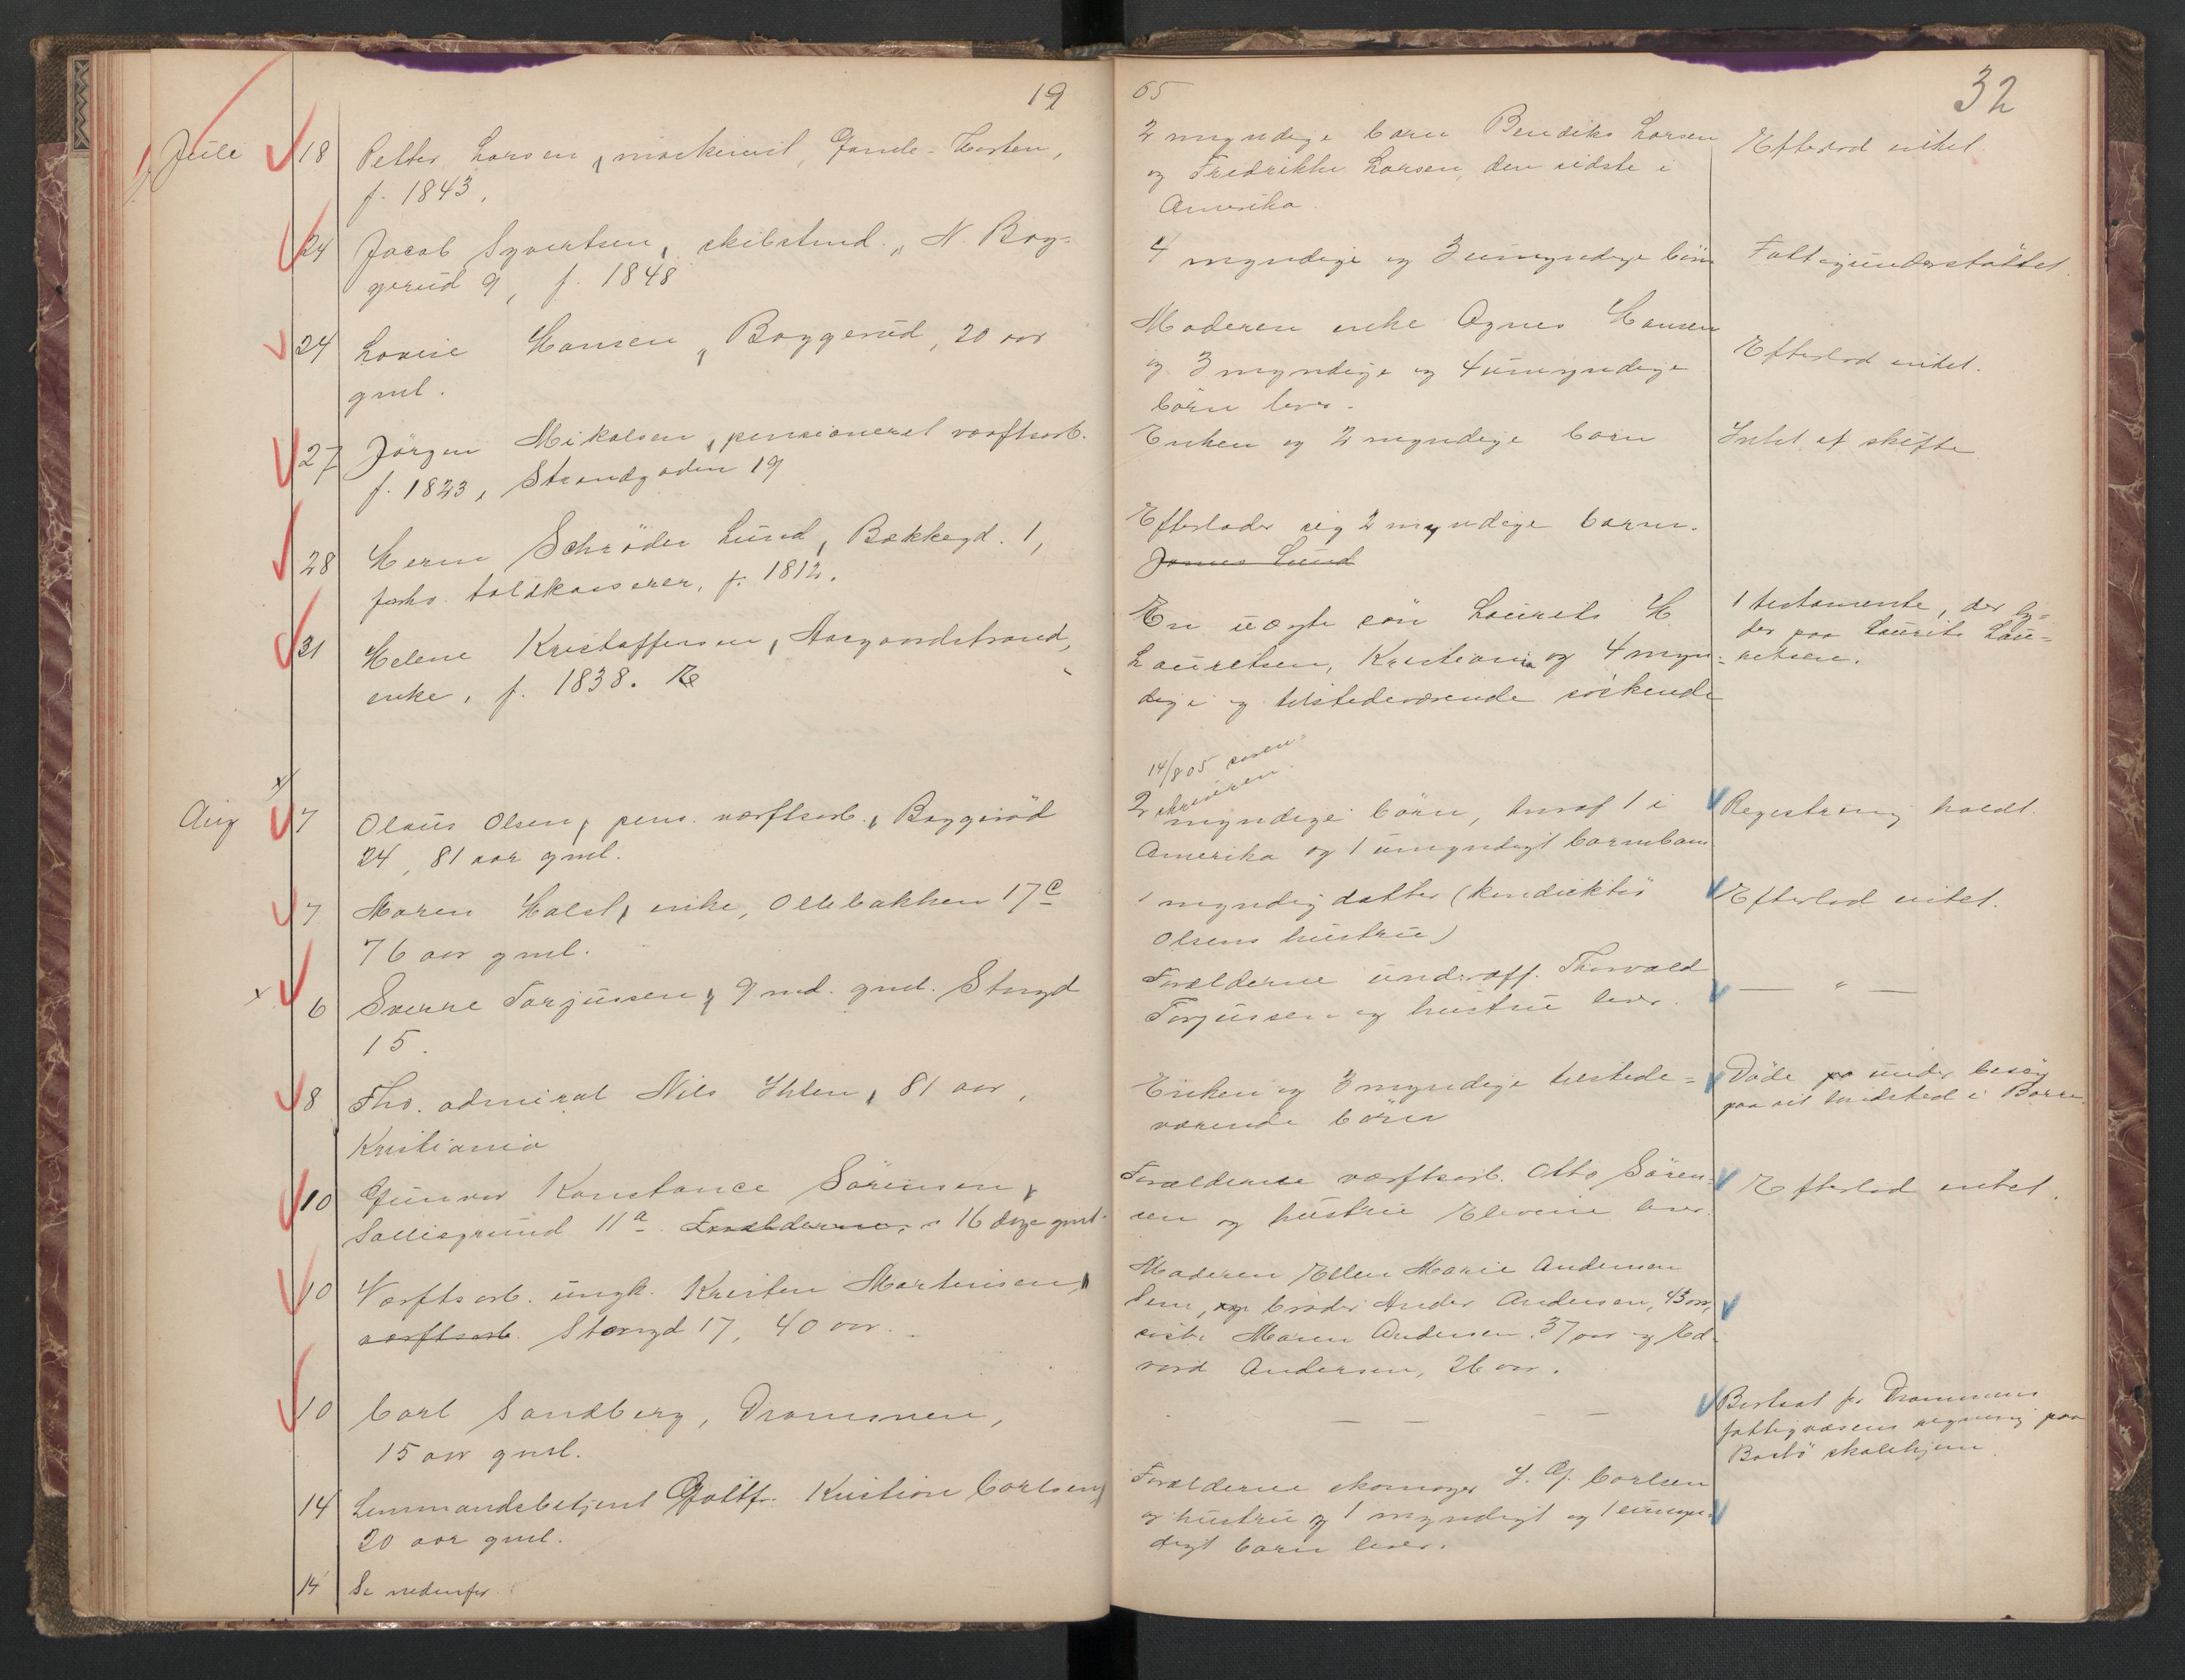 19
05
32
Juli 18 Petter Larsen, maskinist, Gande-Horten,
f. 1843.
2 myndige børn Bendiks Larsen
og Fredrikke Larsen, den sidste i
Amerika.
Efterlod intet
24 Jacob Syvertsen, skibstmd., N. Bog-
gerud 9, f. 1848
4 myndige og 3 umyndige börn
Fattigunderstöttet.
24 Lovise Hansen, Boggerud, 20 aar
gml.
Moderen enke Agnes Hansen
og 3 myndige og 4 umyndige
børn lever.
Efterlod intet.
27 Jörgen Mikalsen, pensioneret værftsarb.
f. 1823, Strandgaden 19
Enken og 2 myndige børn
Intet at skifte
28 Herm Schröder Lund, Bakkegd. 1,
forhv. toldkasserer, f. 1812.
Efterlader sig 2 myndige barn.
Jonas Lund
31 Helene Kristoffersen, Aasgaardstrand,
enke, f. 1838.
En uægte sön Laurits H.
Lauritsen, Kristiania og 4 myn-
dige og tilstedeværende söskende
1 testamente, der ly-
der paa Laurits Lau-
ritsen.
14/8 05 soren-
skriveren.
Aug 7 Olaus Olsen, pens. værftsarb., Boggeröd
24, 81 aar gml.
2 myndige börn, hvoraf 1 i
Amerika og 1 umyndigt barnebarn
Registrering holdt.
7 Maren Holst, enke, Ollebakken 17c
76 aar gml.
1 myndig datter (konduktör
Olsens hustru)
Efterlod intet.
x 6 Sverre Torjussen, 9 md. gml. Storgd
15.
Forældrene underoff. Thorvald
Torjussen og hustru lever.
— " —
8 Fhv. admiral Nils Ihlen, 81 aar,
Kristiania
Enken og 3 myndige tilstede-
værende börn
Döde pa under besög
paa sit landsted i Borre.
10 Gunvor Konstance Sörensen,
Sollisgrund 11a. Forælderne, 16 dage gml.
Forælderne værftsarb. Otto Sören-
sen og hustru Elevine lever.
Efterlod intet.
10 Værftsarb. ungk. Kristen Martinsen,
værftsarb. Storgd 17, 40 aar.
Moderen Ellen Marie Andersen
Sem, og broder Ander Andersen, 43 aar,
söster Maren Andersen 37 aar og Ed-
vard Andersen, 26 aar.
10 Carl Sandberg, Drammen,
15 aar gml.
— — — —
Bortsat for Drammens
fattigvæsens regning paa
Bastö skolehjem.
14 Lensmandsbetjent Gottfr. Kristian Carlsen,
20 aar gml.
Forælderne skomager J. G. Carlsen
og hustru og 1 myndigt og 1 umyn-
digt barn lever.
14 Se nedenfor.